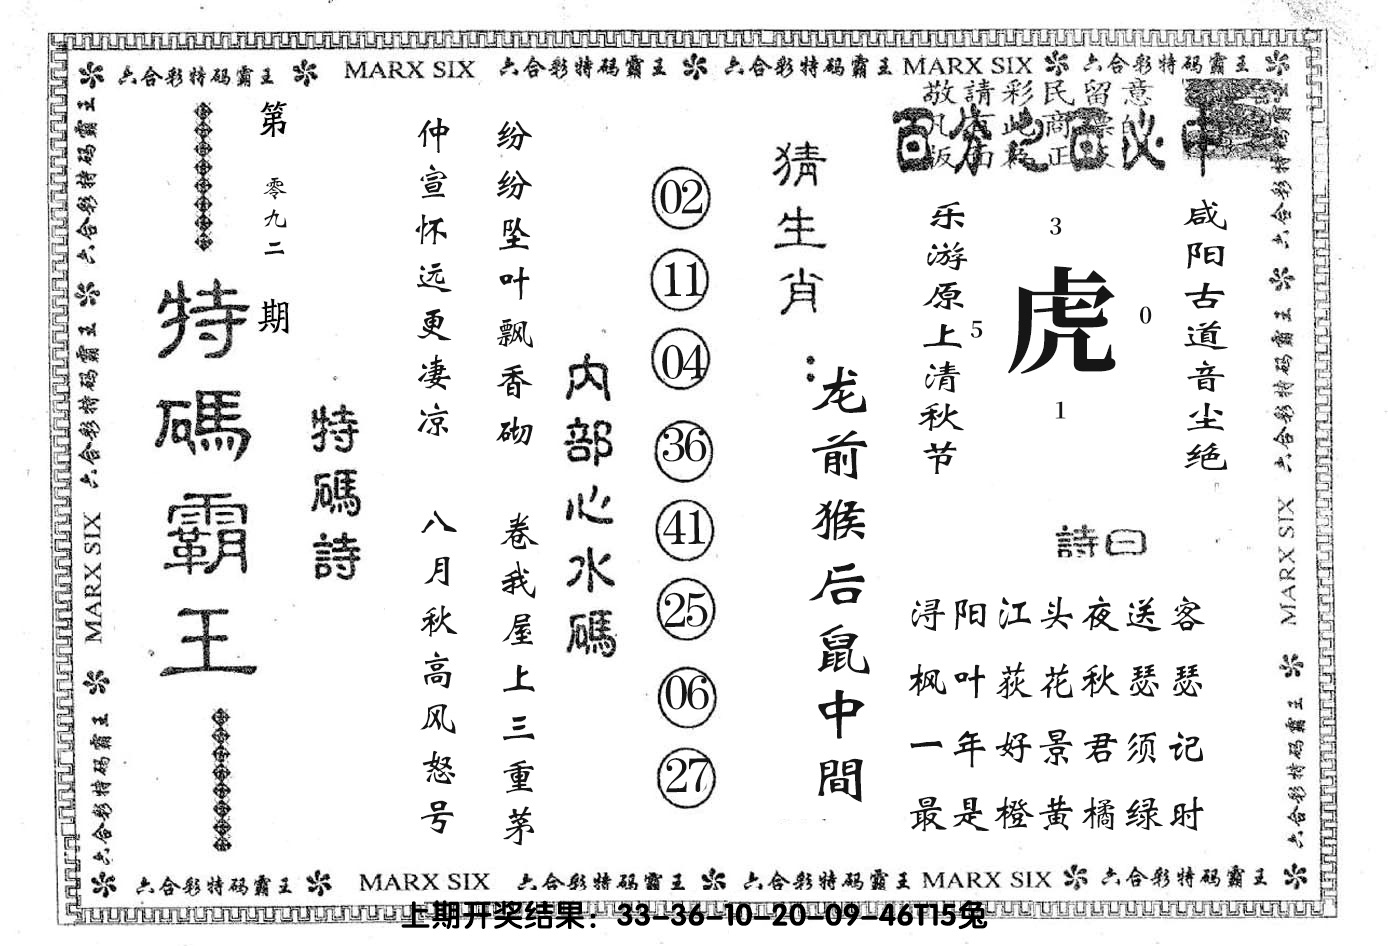 六合彩特码霸王 MARX SIX 六合彩特码霸王 六合彩特码霸王 MARX SIX 六合彩特码霸王
敬請彩民留意
百分之百必中
第零九二期
特碼霸王
特碼詩
仲宣怀远更凄凉
纷纷坠叶飘香砌
八月秋高风怒号
卷我屋上三重茅
内部心水碼
02
11
04
36
41
25
06
27
猜生肖：
龙前猴后鼠中間
乐游原上清秋节
3
5 虎 0
1
咸阳古道音尘绝
詩曰
浔阳江头夜送客
枫叶荻花秋瑟瑟
一年好景君须记
最是橙黄橘绿时
六合彩特码霸王 六合彩特码霸王 MARX SIX 六合彩特码霸王
六合彩特码霸王 六合彩特码霸王 MARX SIX 六合彩特码霸王
六合彩特码霸王 MARX SIX 六合彩特码霸王 六合彩特码霸王 MARX SIX 六合彩特码霸王
上期开奖结果：33-36-10-20-09-46T15兔